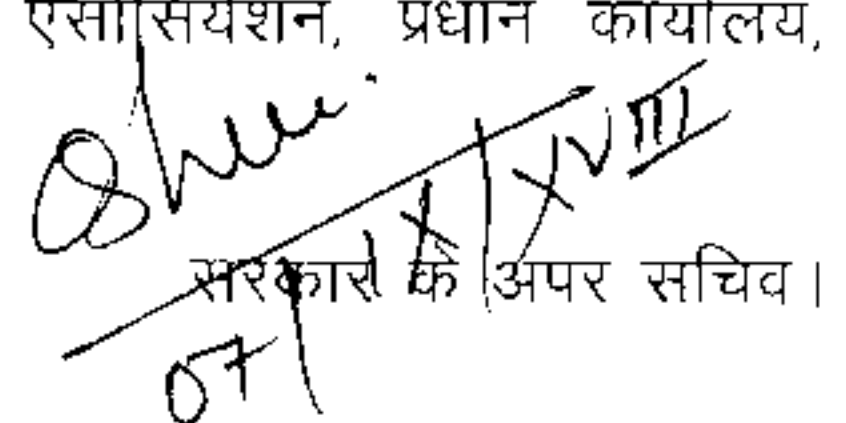 एसोसियेशन, प्रधान कार्यालय,
सरकार के अपर सचिव।
07/1X/XVIII